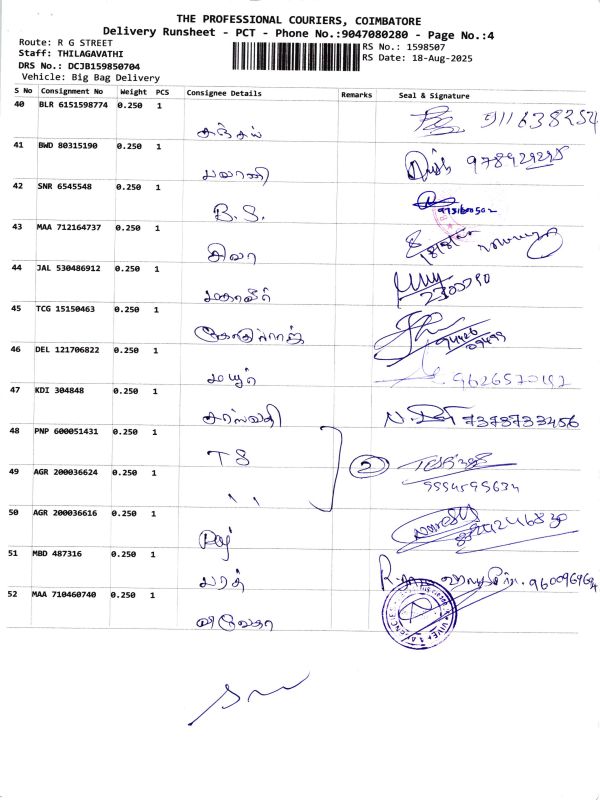 THE PROFESSIONAL COURIERS, COIMBATORE
Delivery Runsheet - PCT - Phone No.:9047080280 - Page No.:4
Route: R G STREET
RS No.: 1598507
Staff: THILAGAVATHI
RS Date: 18-Aug-2025
DRS No.: DCJB159850704
Vehicle: Big Bag Delivery
S No Consignment No Weight PCS Consignee Details Remarks Seal & Signature
40 BLR 6151598774 0.250 1
சஞ்சய்
41 BWD 80315190 0.250 1
பவானி
42 SNR 6545548 0.250 1
B.S.
43 MAA 712164737 0.250 1
சிவா
44 JAL 530486912 0.250 1
மகாவீர்
2300090
45 TCG 15150463 0.250 1
94426
09499
46 DEL 121706822 0.250 1
மயூர்
47 KDI 304848 0.250 1
சரஸ்வதி 7378733456
48 PNP 600051431 0.250 1
T S 2
49 AGR 200036624 0.250 1
" 
50 AGR 200036616 0.250 1
Raj
51 MBD 487316 0.250 1
பரத்
52 MAA 710460740 0.250 1
விவேகா